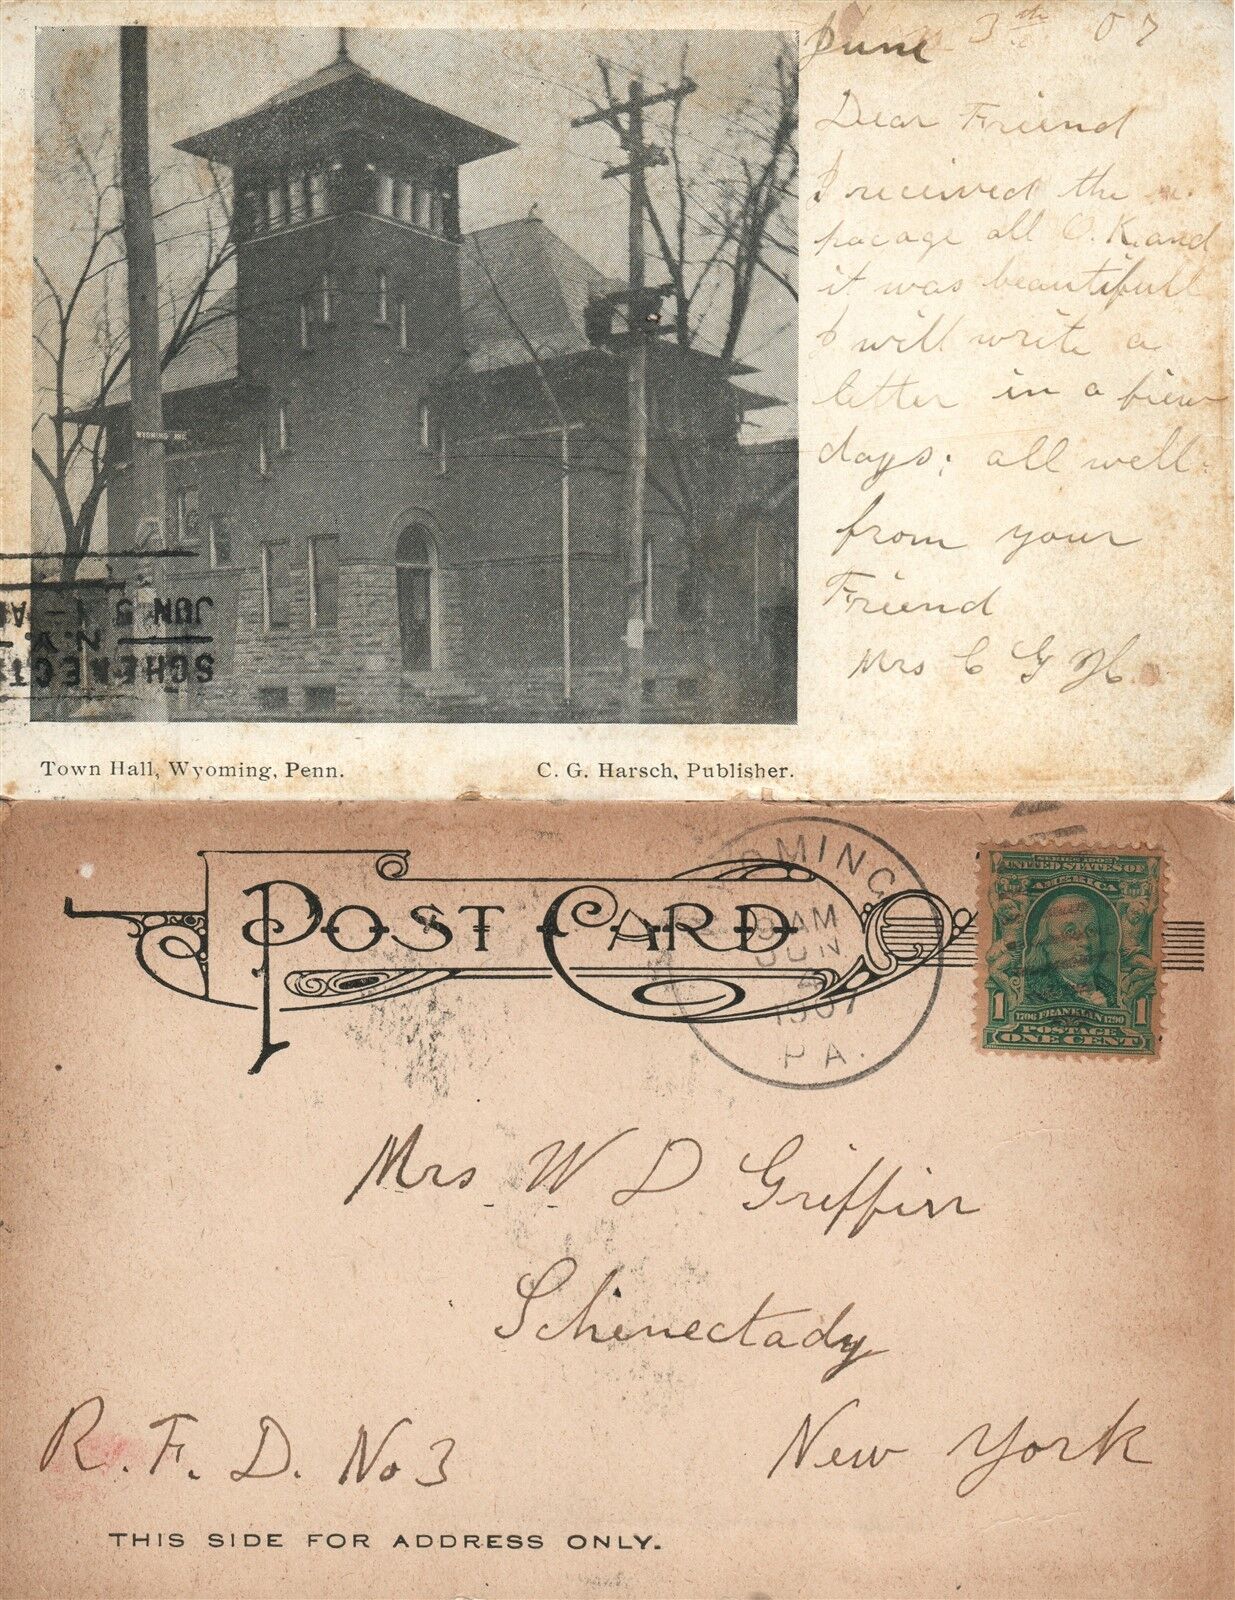 June 3th 07
Dear Friend
I received the
pacage all O.K. and
it was beautifull
I will write a
letter in a fiew
days; all well.
from your
Friend
Mrs C G H.
WYOMING AVE.
JUN 5
N.Y.
SCHENECT
Town Hall, Wyoming, Penn.
C. G. Harsch, Publisher.
POST CARD
WYOMING
9 AM
JUN
4
1907
PA.
SERIES 1902
UNITED STATES OF
AMERICA
1 1
1706 FRANKLIN 1790
POSTAGE
ONE CENT
Mrs W D Griffin
Schenectady
R. F. D. No 3
New York
THIS SIDE FOR ADDRESS ONLY.